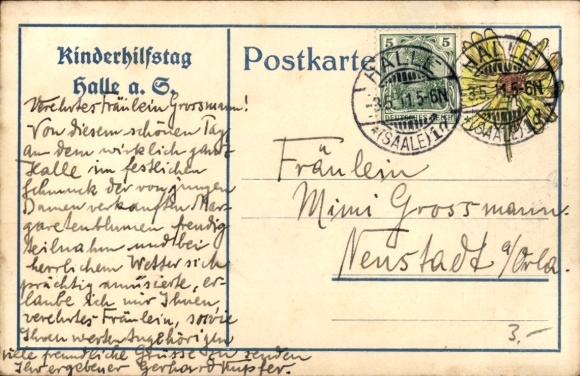 Kinderhilfstag
Halle a. S.
Verehrtes Fräulein Grossmann!
Von diesem schönen Tag,
an dem wirklich ganz
Halle im festlichen
Schmuck der von jungen
Damen verkauften Mar-
garetenblumen freudig
teilnahm und bei
herrlichem Wetter sich
prächtig amüsierte, er-
laube ich mir Ihnen,
verehrtes Fräulein, sowie
Ihren werten Angehörigen
viele freundliche Grüsse zu senden
Ihr ergebener Gerhard Kupfer.
Postkarte
5 5
DEUTSCHES REICH
HALLE
3.5.11.5-6N
*(SAALE)1
HALLE
3.5.11.5-6N
*(SAALE)1
Fräulein
Mimi Grossmann.
Neustadt a/Orla.
3.-